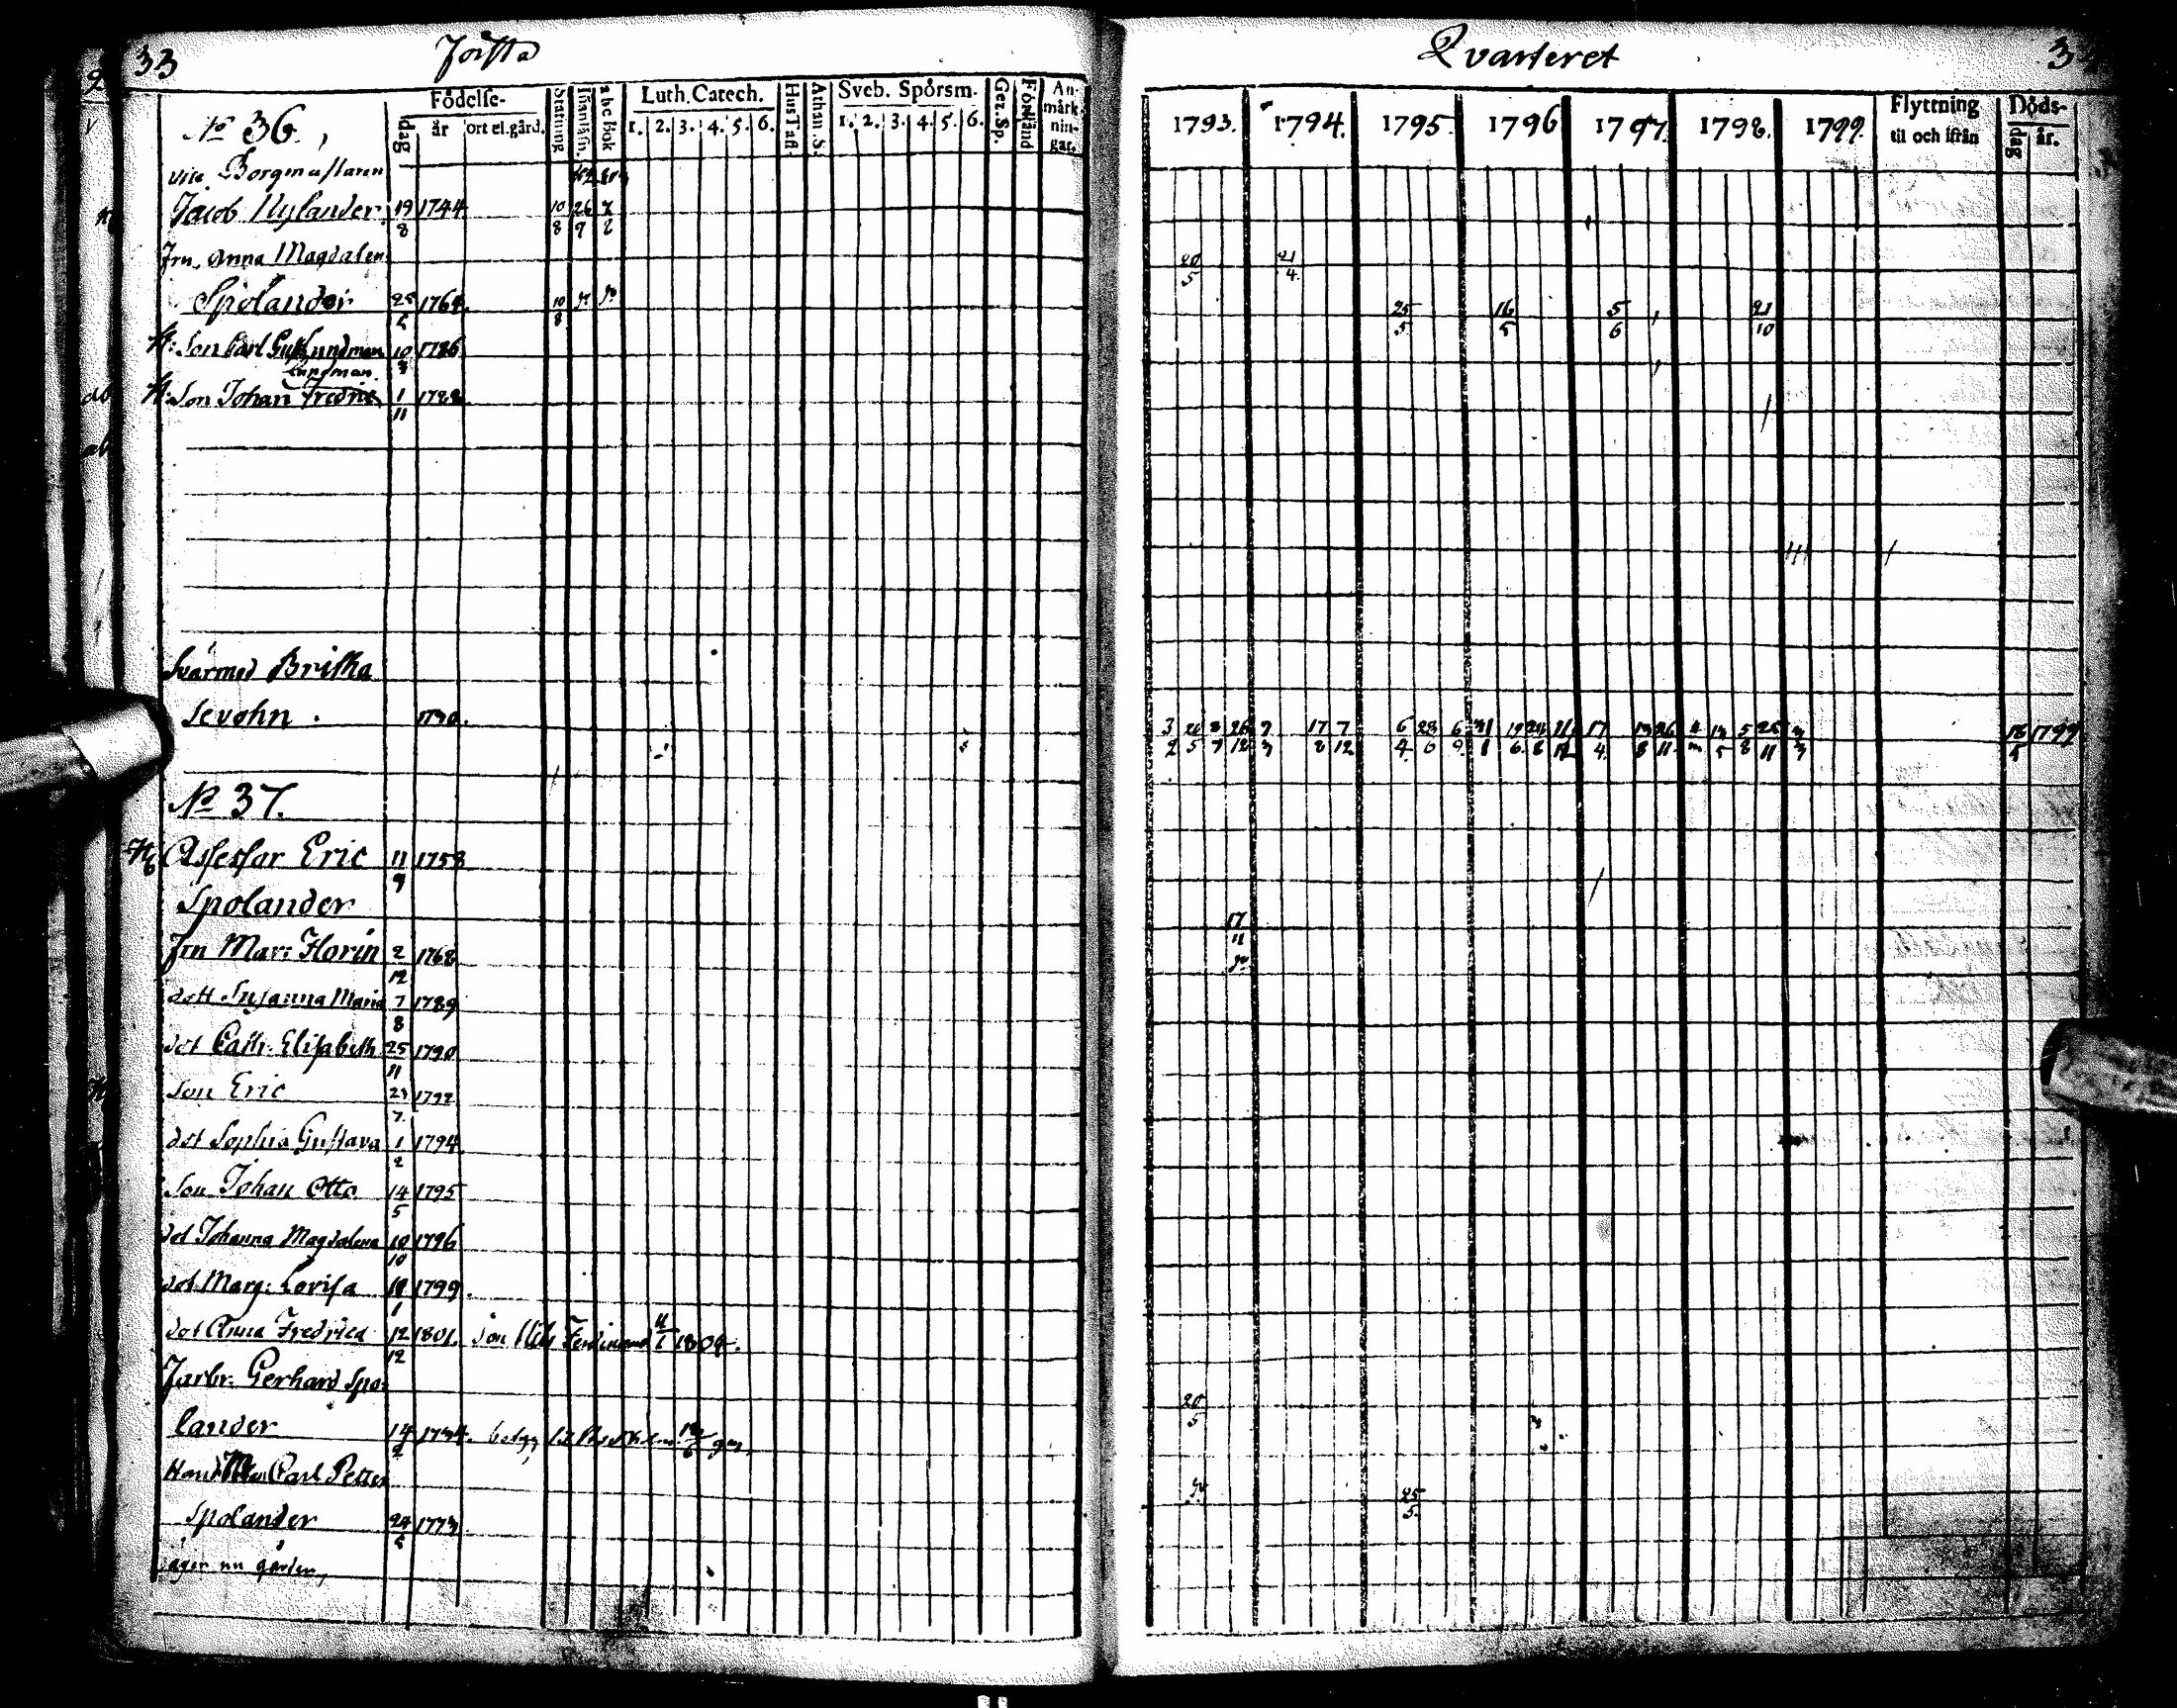 33 Första
Födelse- Stafning Innanläsn. abc Bok Luth. Catech. Hus Tafl. Athan. S. Sveb. Spörsm. Gez. Sp. Förstånd An-
märk-
nin-
gar.
dag år ort el. gård. 1. 2. 3. 4. 5. 6. 1. 2. 3. 4. 5. 6.
No 36.,
vice Borgmästaren
Jacob Nylander 19/8 1744 10/8 26/9
Fru Anna Magdalen
Spolander 25/5 1764. 10/8
Son Carl Gust Lundman 10/3 1786
Lundman
Son Johan Fredric 1/11 1788
Svärmod Britha
Sevohn. 1730.
No 37.
Assessor Eric 11/9 1758
Spolander
Fru Mar: Florin 2/12 1768
dott Susanna Maria 7/8 1789
dot Cath: Elisabeth 25/11 1790
Son Eric 23/7 1792
dot Sophia Gustava 1/2 1794
Son Johan Otto 14/5 1795
dot Johanna Magdalena 10/10 1796
dot Marg: Lovisa 1799.
dot Anna Fredrica 12/12 1801. Son Nils Ferdinand 1804.
Farbr: Gerhard Spo-
lander 14/2 1734.
Carl Petter
Spolander 24/5 1773
äger nu gården,
Qvarteret 3
1793. 1794. 1795. 1796 1797. 1798. 1799. Flyttning
til och ifrån Döds-
dag år.
20/5 21/4
25/5 16/5 5/6 21/10
3/2 20/5 8/7 26/12 7/3 17/8 7/12 6/4 28/6 6/9 31/1 19/6 28/8 11/12 17/4 13/8 26/11 13/5 5/8 25/11 3/3 18/5 1799
17/11
20/5
25/5